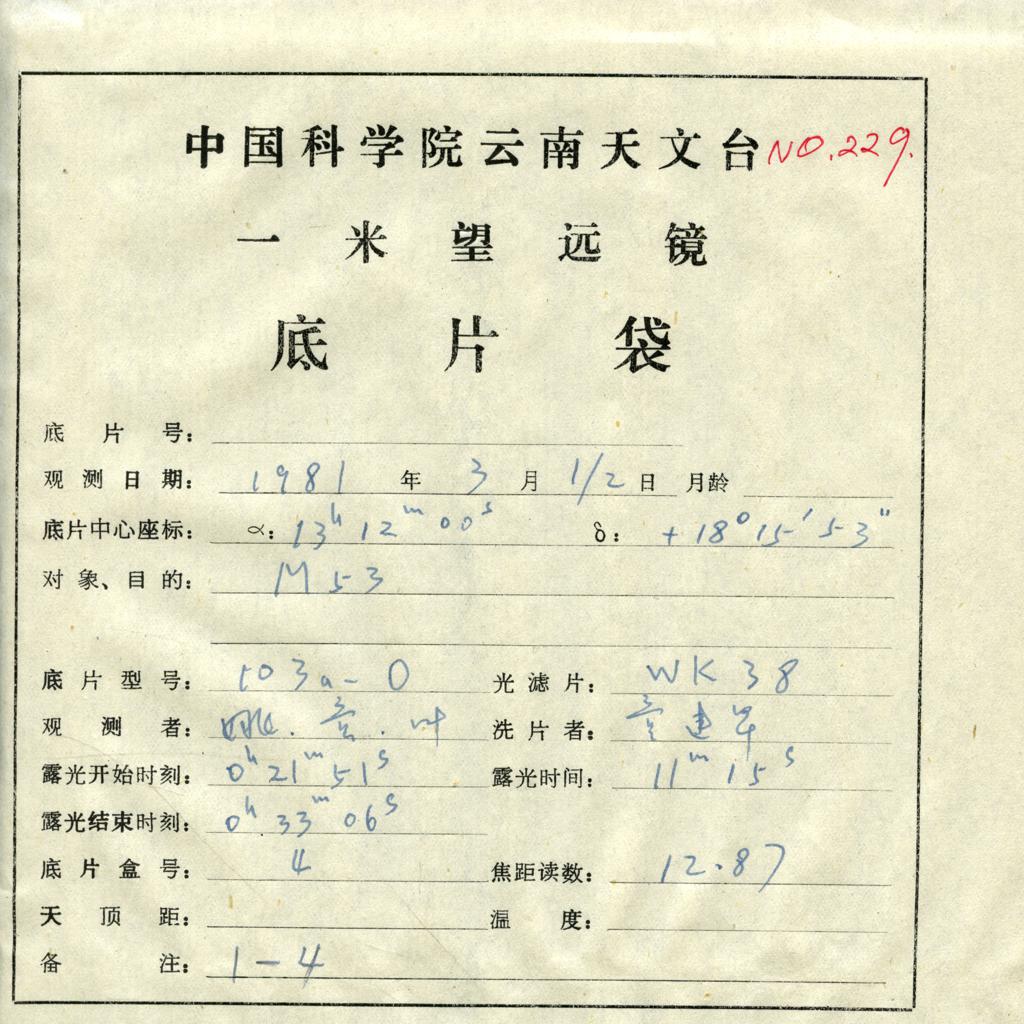 中国科学院云南天文台 NO.229.
一米望远镜
底片袋
底片号:
观测日期: 1981 年 3 月 1/2 日 月龄
底片中心座标: α: 13h 12m 00s δ: +18° 15′ 53″
对象、目的: M53
底片型号: 103a-O 光滤片: WK 38
观测者: 姚. . 叶 洗片者: 建
露光开始时刻: 0h 21m 51s 露光时间: 11m 15s
露光结束时刻: 0h 33m 06s
底片盒号: 4 焦距读数: 12.87
天顶距: 温度:
备注: 1-4